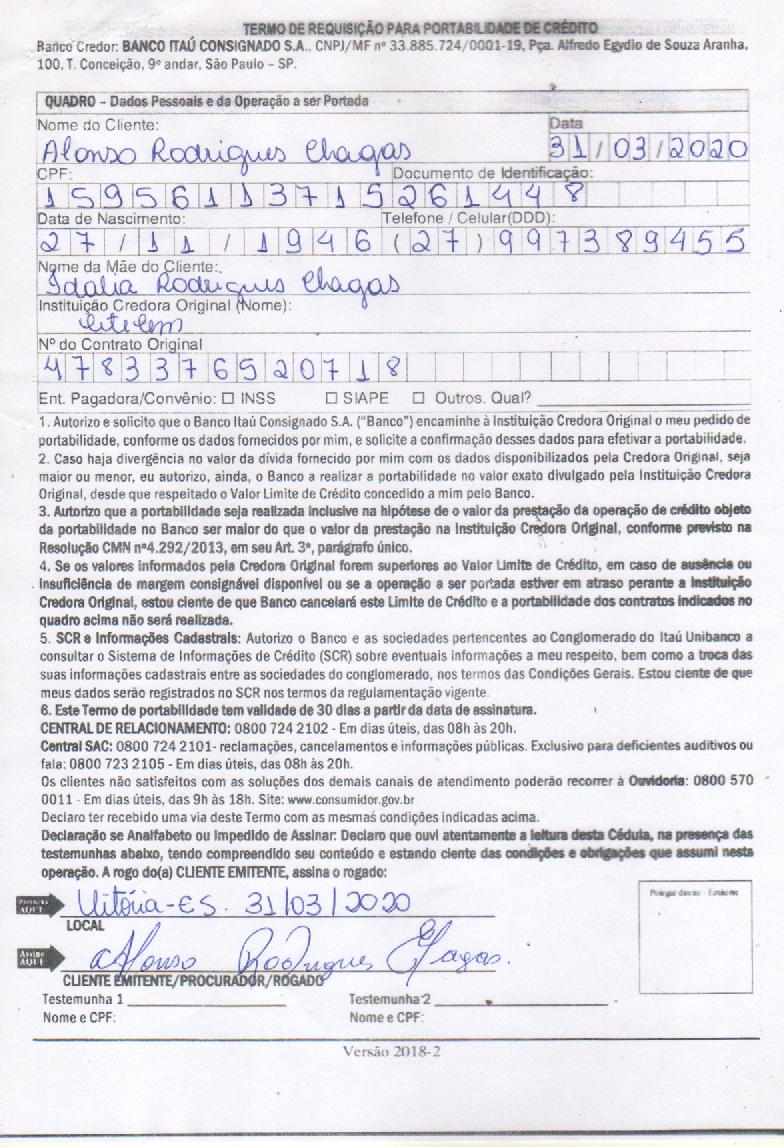 TERMO DE REQUISIÇÃO PARA PORTABILIDADE DE CRÉDITO
Banco Credor: BANCO ITAÚ CONSIGNADO S.A., CNPJ/MF nº 33.885.724/0001-19, Pça. Alfredo Egydio de Souza Aranha,
100, T. Conceição, 9º andar, São Paulo – SP.
QUADRO – Dados Pessoais e da Operação a ser Portada
Nome do Cliente: Data
Alonso Rodrigues Chagas 31/03/2020
CPF: Documento de Identificação:
15956113715261448
Data de Nascimento: Telefone / Celular(DDD):
27/11/1946 (27)997389455
Nome da Mãe do Cliente:
Idalia Rodrigues Chagas
Instituição Credora Original (Nome):
Cetelem
Nº do Contrato Original
4783376520718
Ent. Pagadora/Convênio: ☐ INSS ☐ SIAPE ☐ Outros. Qual?
1. Autorizo e solicito que o Banco Itaú Consignado S.A. (“Banco”) encaminhe à Instituição Credora Original o meu pedido de
portabilidade, conforme os dados fornecidos por mim, e solicite a confirmação desses dados para efetivar a portabilidade.
2. Caso haja divergência no valor da dívida fornecido por mim com os dados disponibilizados pela Credora Original, seja
maior ou menor, eu autorizo, ainda, o Banco a realizar a portabilidade no valor exato divulgado pela Instituição Credora
Original, desde que respeitado o Valor Limite de Crédito concedido a mim pelo Banco.
3. Autorizo que a portabilidade seja realizada inclusive na hipótese de o valor da prestação da operação de crédito objeto
da portabilidade no Banco ser maior do que o valor da prestação na Instituição Credora Original, conforme previsto na
Resolução CMN nº4.292/2013, em seu Art. 3º, parágrafo único.
4. Se os valores informados pela Credora Original forem superiores ao Valor Limite de Crédito, em caso de ausência ou
insuficiência de margem consignável disponível ou se a operação a ser portada estiver em atraso perante a Instituição
Credora Original, estou ciente de que Banco cancelará este Limite de Crédito e a portabilidade dos contratos indicados no
quadro acima não será realizada.
5. SCR e Informações Cadastrais: Autorizo o Banco e as sociedades pertencentes ao Conglomerado do Itaú Unibanco a
consultar o Sistema de Informações de Crédito (SCR) sobre eventuais informações a meu respeito, bem como a troca das
suas informações cadastrais entre as sociedades do conglomerado, nos termos das Condições Gerais. Estou ciente de que
meus dados serão registrados no SCR nos termos da regulamentação vigente.
6. Este Termo de portabilidade tem validade de 30 dias a partir da data de assinatura.
CENTRAL DE RELACIONAMENTO: 0800 724 2102 - Em dias úteis, das 08h às 20h.
Central SAC: 0800 724 2101- reclamações, cancelamentos e informações públicas. Exclusivo para deficientes auditivos ou
fala: 0800 723 2105 - Em dias úteis, das 08h às 20h.
Os clientes não satisfeitos com as soluções dos demais canais de atendimento poderão recorrer à Ouvidoria: 0800 570
0011 - Em dias úteis, das 9h às 18h. Site: www.consumidor.gov.br
Declaro ter recebido uma via deste Termo com as mesmas condições indicadas acima.
Declaração se Analfabeto ou Impedido de Assinar: Declaro que ouvi atentamente a leitura desta Cédula, na presença das
testemunhas abaixo, tendo compreendido seu conteúdo e estando ciente das condições e obrigações que assumi nesta
operação. A rogo do(a) CLIENTE EMITENTE, assina o rogado:
Preencha AQUI Vitória-ES. 31/03/2020 Polegar direito - Emitente
LOCAL
Assine AQUI Afonso Rodrigues Chagas.
CLIENTE EMITENTE/PROCURADOR/ROGADO
Testemunha 1 Testemunha 2
Nome e CPF: Nome e CPF:
Versão 2018-2